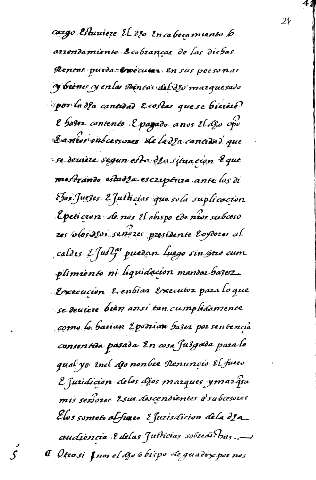 cargo estuviere El dho encabeçamiento o
arrendamiento E cobranças de las dichas
Rentas pueda executar en sus personas
y bienes y en las Rentas del dho marquesado
por la dha cantidad E costas que se hizieren
E hazer contento E pagado a nos El dho
E a nros subcesores de la dha cantidad que
se deviere segun esta dha situacion E que
mostrando esta dha escriptura ante los di
chos Juezes E Justicias que sola suplicacion
E peticion de nos el obispo E de nros subceso
res o los dhos señores presidente E oydores al
caldes E Justas puedan luego sin otro cum
plimiento ni liquidacion mandar hazer
Execucion E enbiar Executor para lo que
se deviere bien ansi tan cumplidamente
como lo harian E podrian hazer por sentencia
consentida pasada En cosa Juzgada para lo
qual yo En el dho nonbre Renuncio El fuero
E Juridicion de los dhos marques y marquesa
mis señores E sus descendientes o subcesores
E los someto al fuero E Jurisdicion de la dha
audiencia E de las Justicias sobredichas
Otrosi nos el dho obispo de guadix por nos